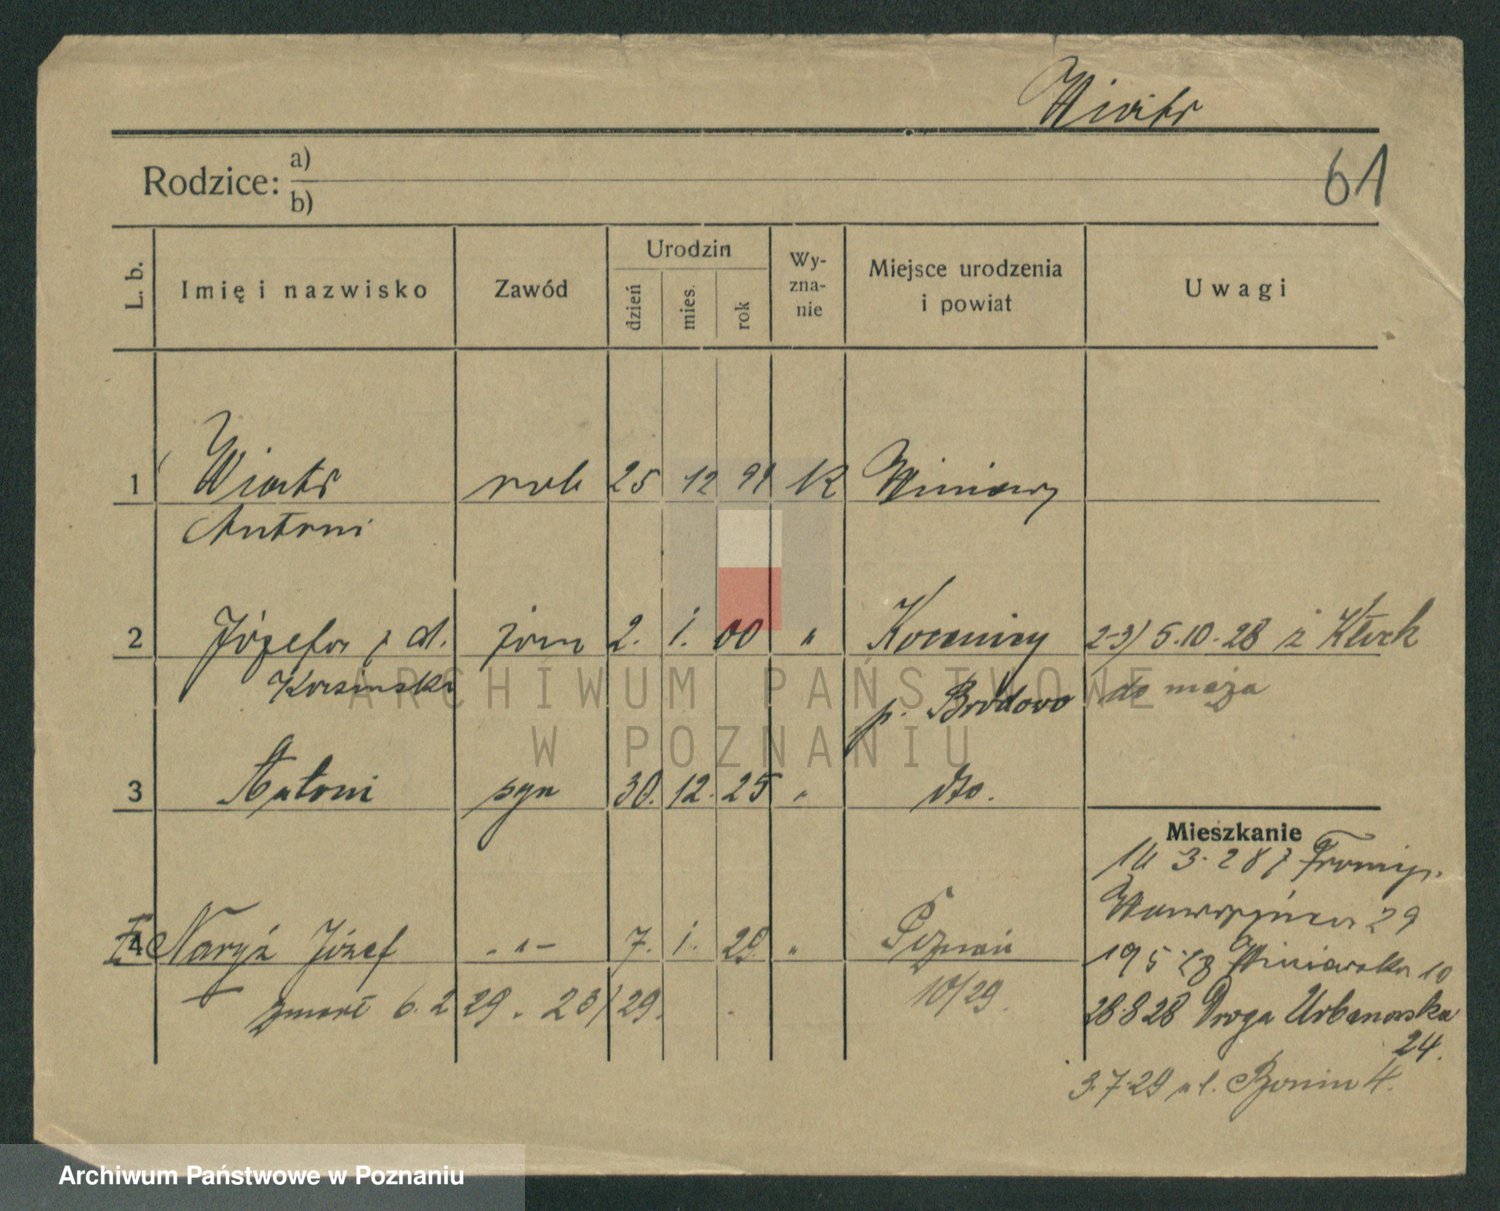 Wiatr
61
Rodzice: a)
b)
L. b. Imię i nazwisko Zawód Urodzin dzień mies. rok Wy-zna-nie Miejsce urodzenia i powiat Uwagi
1 Wiatr rob 25 12 91 K Winiary
Antoni
2 Józefa z d. żona 2. 1. 00 " 2-3) 5.10.28 z Kłeck
do męża
p.
3 Antoni syn 30. 12. 25 " dto.
Mieszkanie
14 3. 28
29
4 Józef - " - 7. 1. 29 " Poznań
19 5 28 Winiarska 10
zmarł 6. 2 29. 23/29. 10/29
28.8 28 Droga Urbanowska
24.
3.7.29 ul. Bonin 4.
ARCHIWUM PAŃSTWOWE
W POZNANIU
Archiwum Państwowe w Poznaniu